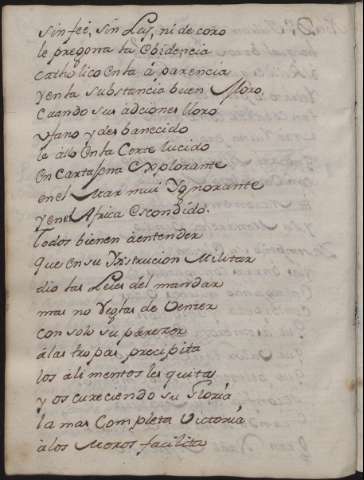 sin feè, sin Ley, ni decoro
le pregona la Obidencia
Catholico en la á parencia
y en la substancia buen Moro,
Cuando sus acciones lloro
Vfano y desbanecido
le àllo En la Corte lucido
En Cartajena Explorante
en el Mar mui Ygnorante
y en el Africa Escondido.
Todos bienen á entender
que en su Ynstrucion Militar
dio las Leies del mandar
mas no Reglas de Vencer
con solo su parecer
à las tropas precipita
los àlimentos les quita
y oscureciendo su Gloria
la mas Completa Victoria
à los Moros facilita